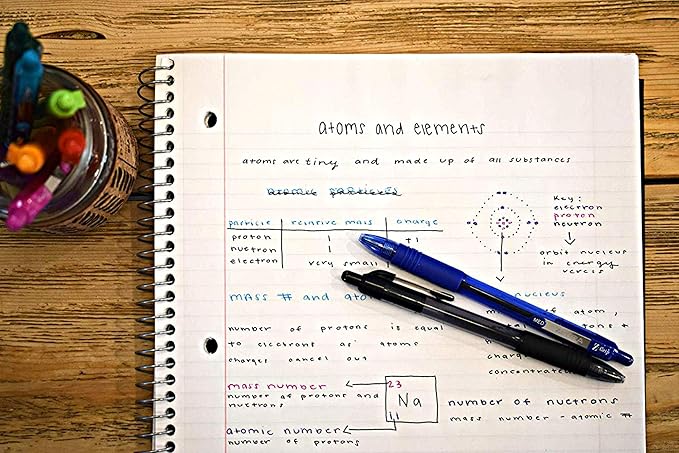 atoms and elements
atoms are tiny and made up of all substances
atomic particles
Key:
electron
proton
neutron
orbit nucleus
in energy
particle relative mass charge
proton 1 +1
nuetron 1
electron very small
mass # and
nucleus
of atom,
number of protons is equal
to electrons as atoms
charges cancel out
charge
concentrated
mass number
number of protons and
nuetrons
23
Na
11
atomic number
number of protons
number of nuetrons
mass number - atomic #
MED
Z-Grip